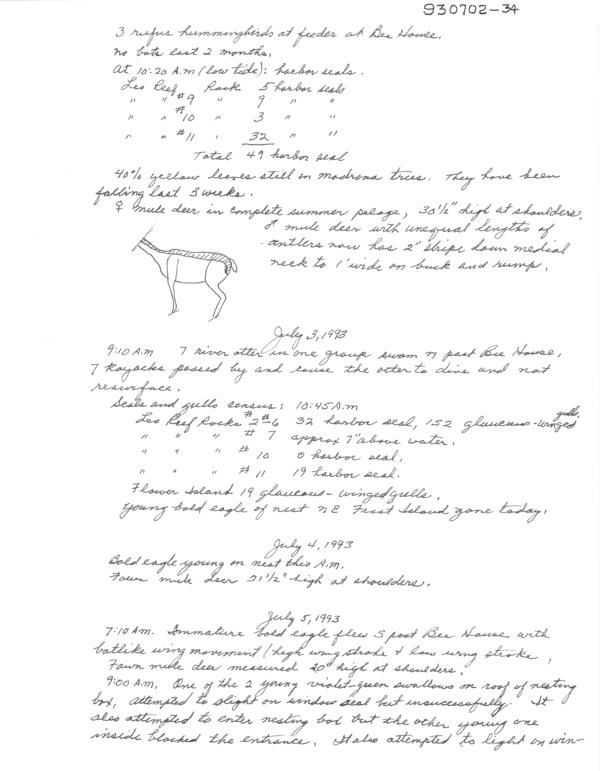 930702-34
3 rufus hummingbirds at feeder at Bee House.
No bats last 2 months.
At 10:20 A.M (low tide): harbor seals.
Leo Reef Rock 5 harbor seals
" " #9 " 9 " "
" " #10 " 3 " "
" " #11 " 32 " "
Total 49 harbor seal
40% yellow leaves still on madrona trees. They have been
falling last 3 weeks.
♀ mule deer in complete summer pelage, 30½" high at shoulders.
♂ mule deer with unequal lengths of
antlers now has 2" stripe down medial
neck to 1' wide on back and rump.
July 3, 1993
9:10 A.M 7 river otter in one group swam N past Bee House,
7 Kayacks passed by and cause the otter to dive and not
resurface.
Seals and gulls census: 10:45 A.m
Leo Reef Rocks #2 #6 32 harbor seal, 152 glaucous-winged gulls,
" " " # 7 approx 7" above water.
" " " # 10 0 harbor seal,
" " " # 11 19 harbor seal.
Flower Island 19 glaucous-winged gulls.
Young bald eagle of nest NE Frost Island gone today.
July 4, 1993
Bald eagle young on nest this A.m.
Fawn mule deer 21½" high at shoulders.
July 5, 1993
7:10 A.m. Immature bald eagle flew S past Bee House with
batlike wing movement (high wing stroke & low wing stroke,
Fawn mule deer measured 20" high at shoulders.
9:00 A.m. One of the 2 young violet-green swallows on roof of nesting
box, attempted to alight on window seal but unsuccessfully. It
also attempted to enter nesting box but the other young one
inside blocked the entrance. It also attempted to light on win-